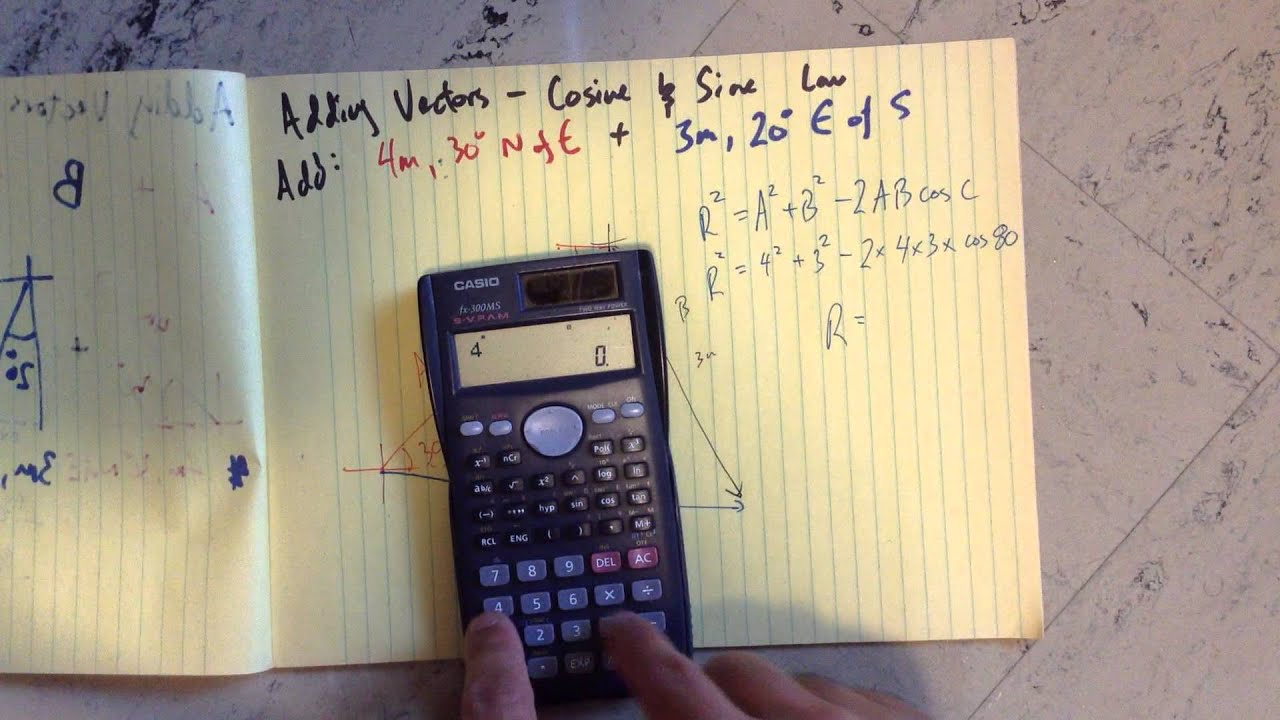 Adding Vectors - Cosine & Sine Law
Add: 4m, 30° N of E + 3m, 20° E of S
R² = A² + B² - 2AB cos C
R² = 4² + 3² - 2 x 4 x 3 x cos 80
R =
A
B
3m
30
CASIO
fx-300MS
S-V.P.A.M.
TWO WAY POWER
4
0.
SHIFT ALPHA MODE CLR ON
x⁻¹ nCr Pol( x³
ab/c √ x² ^ log ln
(-) °''' hyp sin cos tan
RCL ENG ( ) , M+
7 8 9 DEL AC
4 5 6 x ÷
2 3
. EXP
Adding Vectors
B
20°
3m,